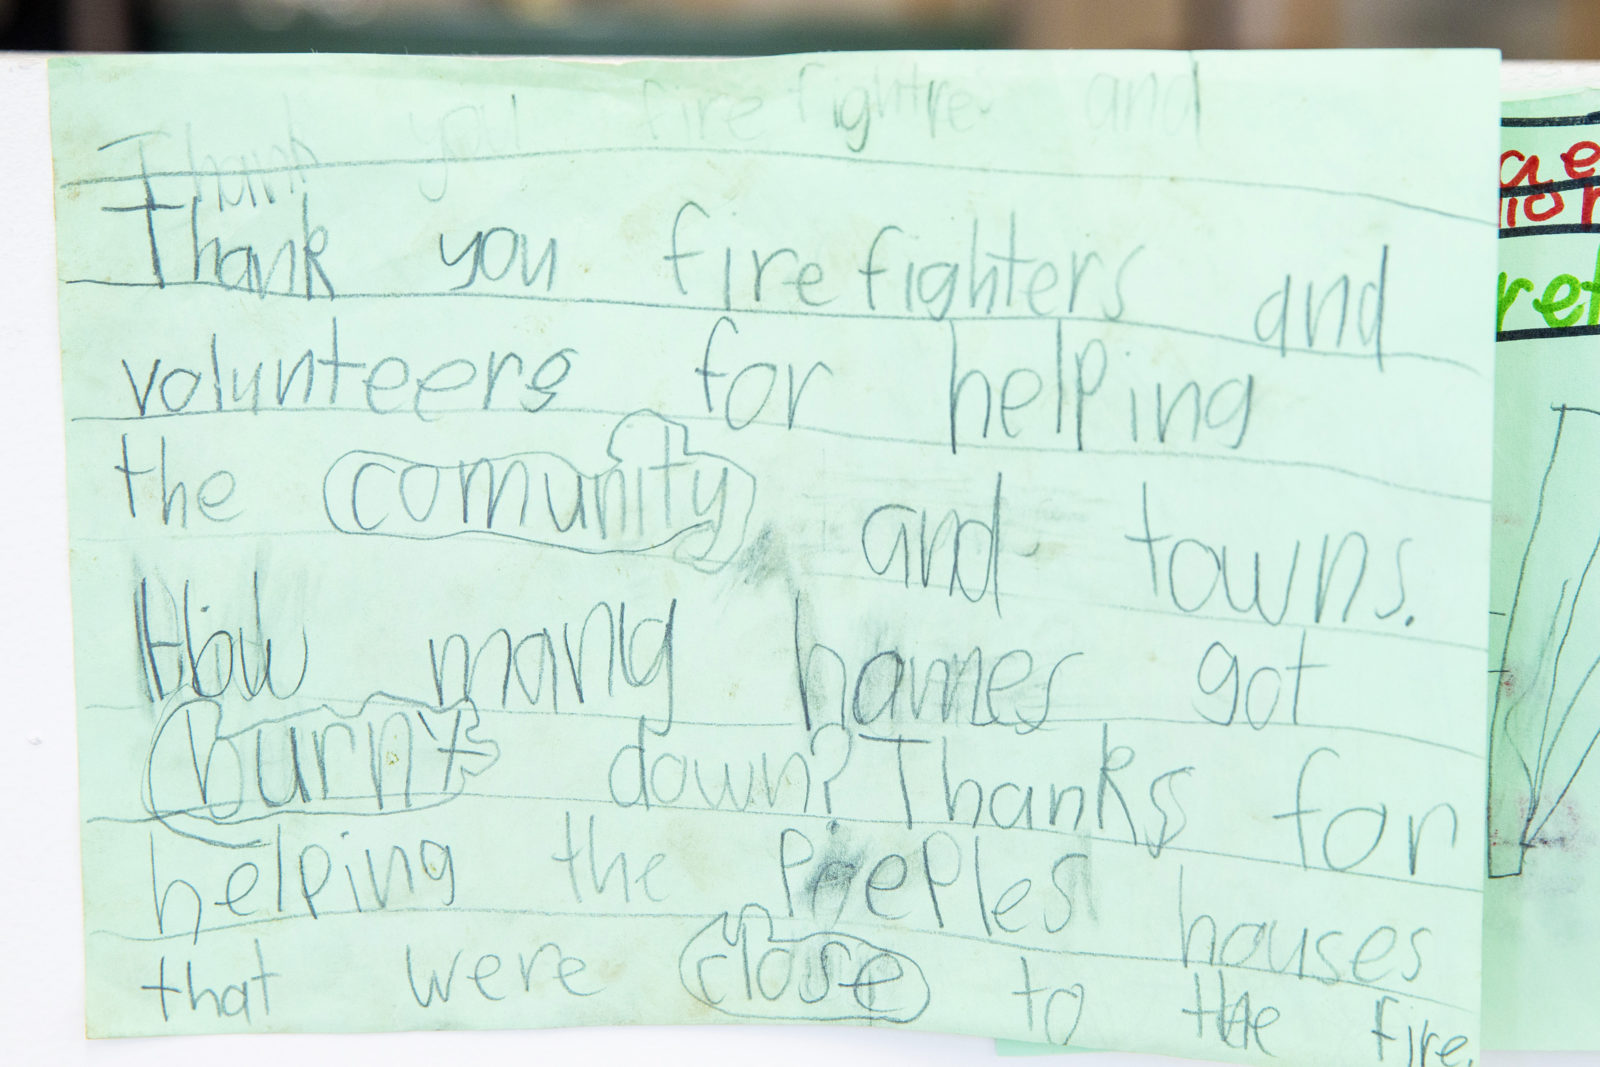 Thank you firefightre and
Thank you firefighters and
volunteers for helping
the comunity and towns.
How many homes got
burnt down? Thanks for
helping the peeples houses
that were close to the fire.